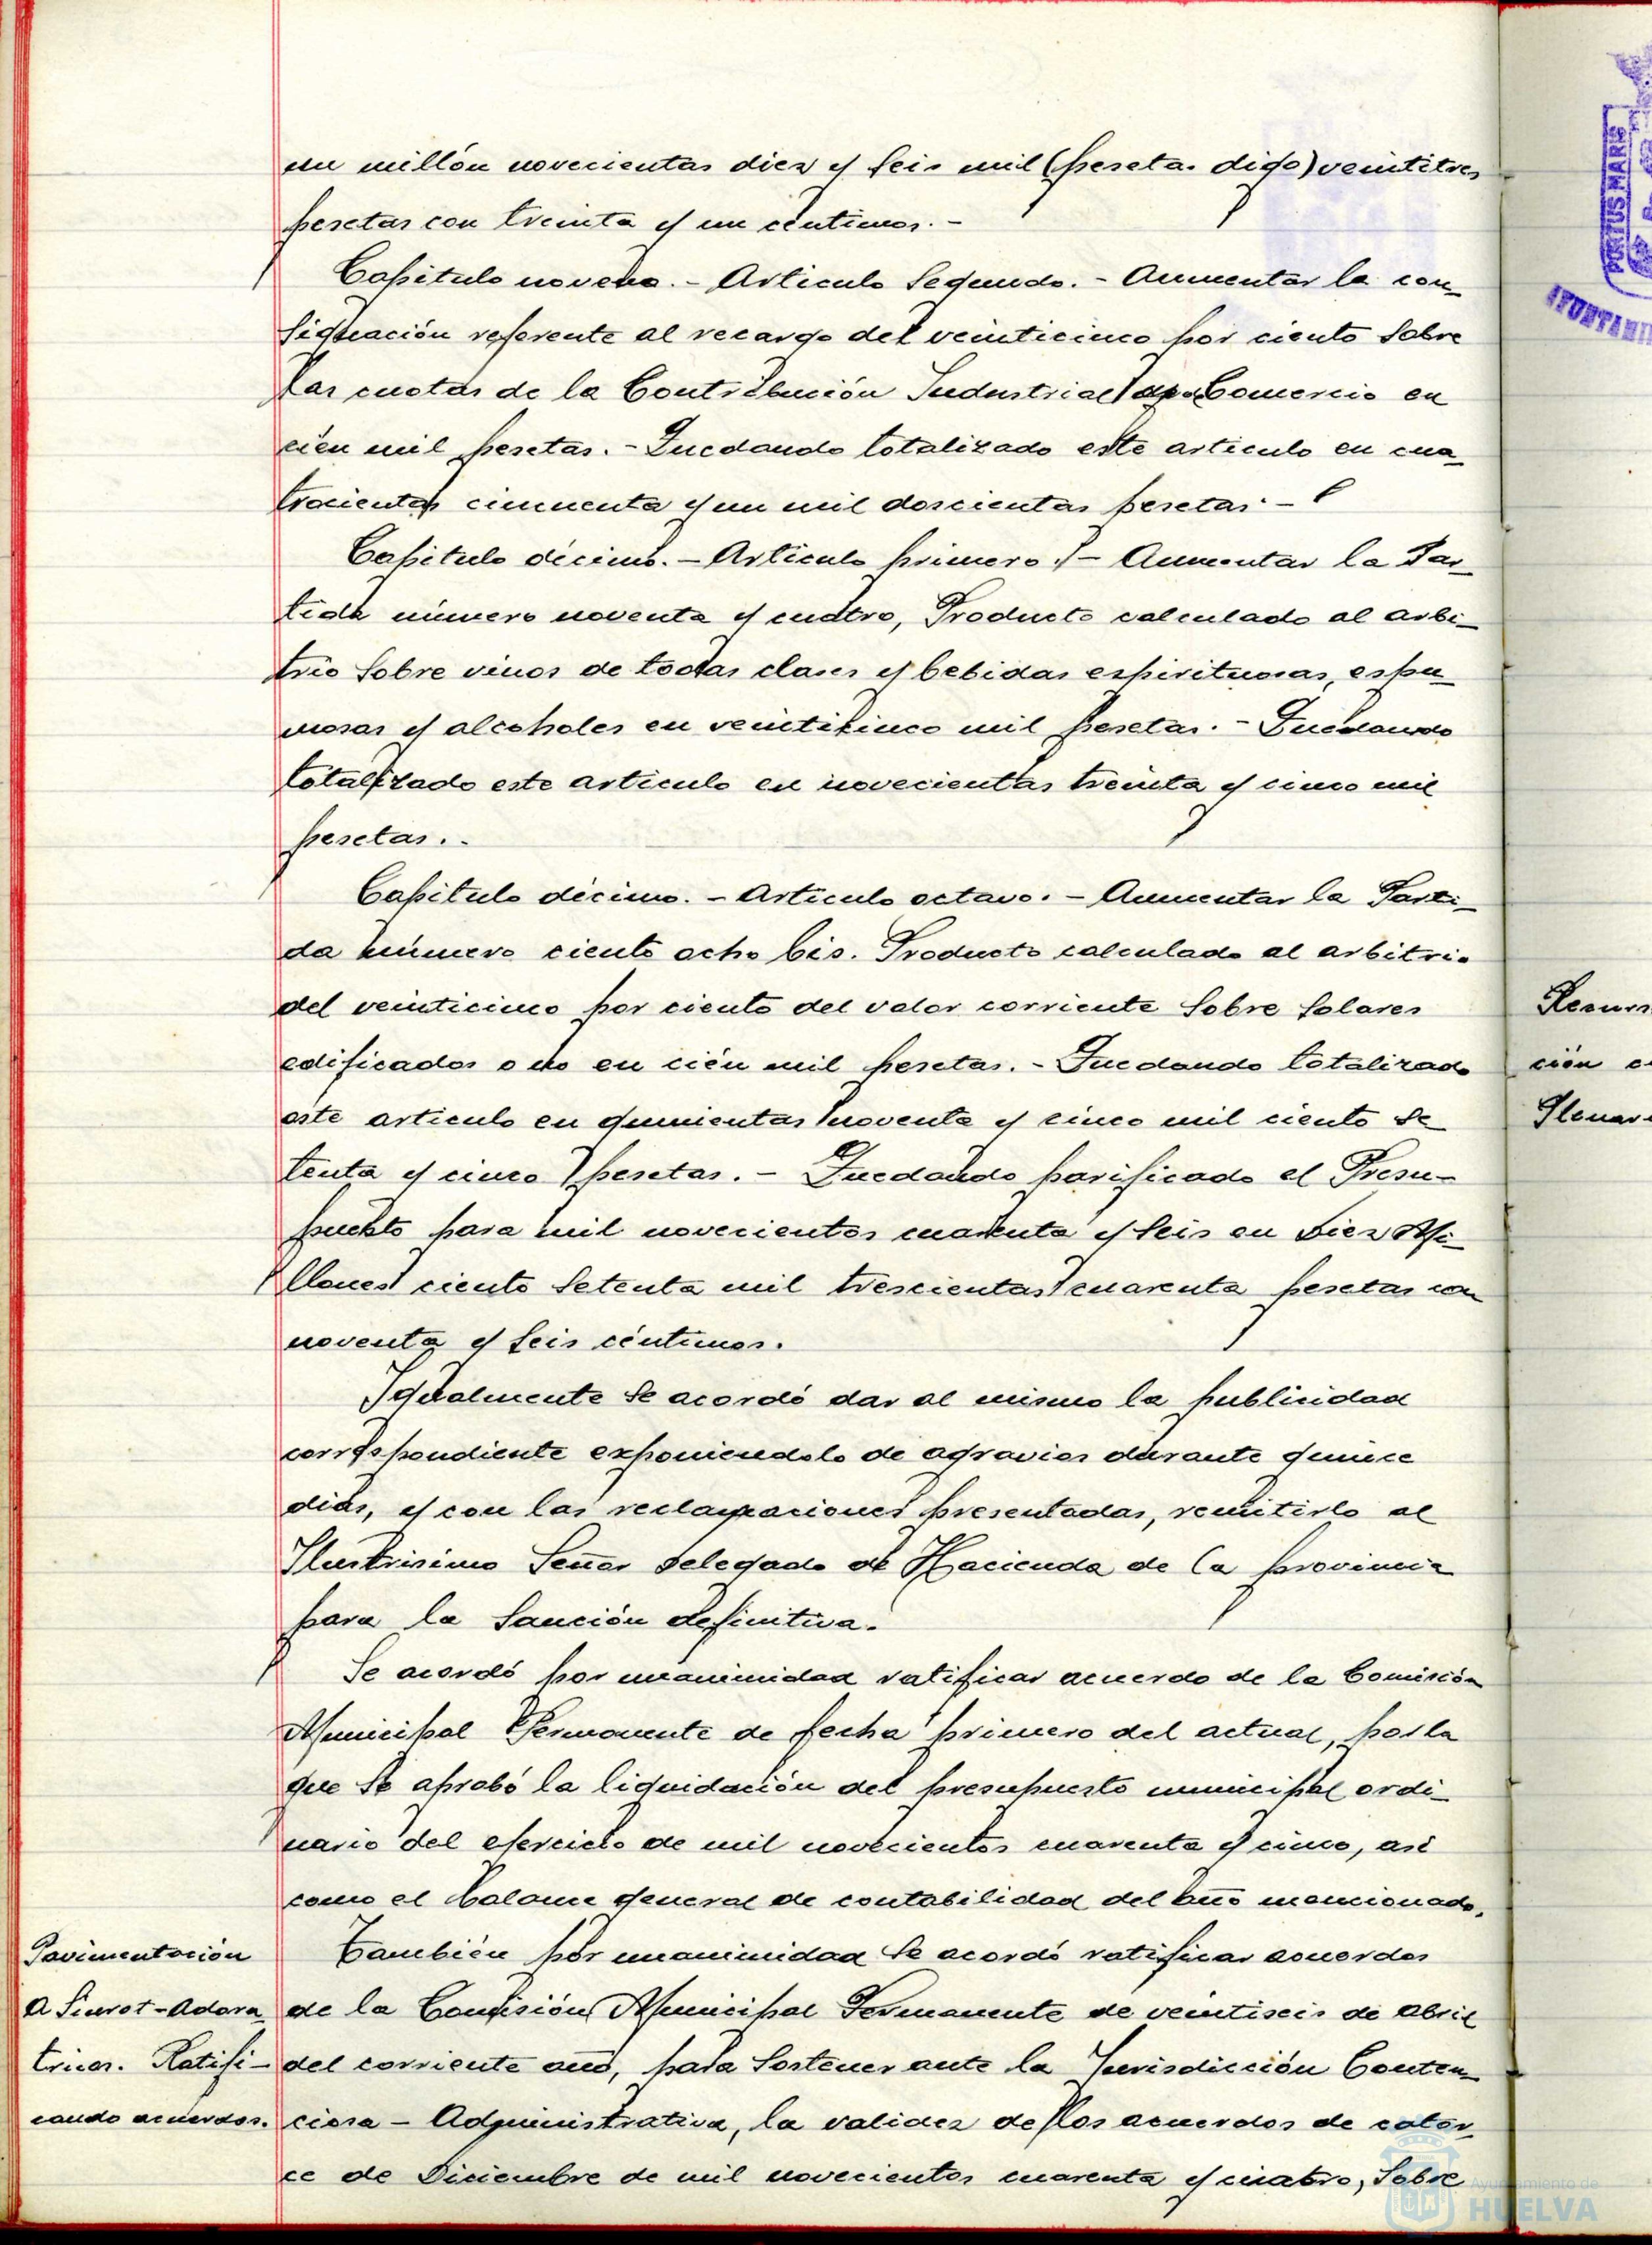 un millón novecientas diez y seis mil (pesetas digo) veintitres
pesetas con treinta y un céntimos.-
Capitulo noveno.- Articulo Segundo.- Aumentar la con_
signación referente al recargo del veinticinco por ciento sobre
las cuotas de la Contribución Industrial Comercio en
cien mil pesetas.- Quedando totalizado este articulo en cua_
trocientas cincuenta y un mil doscientas pesetas.-
Capitulo décimo.- Articulo primero.- Aumentar la Par_
tida número noventa y cuatro, Producto calculado al arbi_
trio sobre vinos de todas clases y bebidas espirituosas, espu_
mosas y alcoholes en veinticinco mil pesetas.- Quedando
totalizado este articulo en novecientas treinta y cinco mil
pesetas.-
Capitulo décimo.- Articulo octavo.- Aumentar la Parti_
da número ciento ocho bis. Producto calculado al arbitrio
del veinticinco por ciento del valor corriente sobre solares
edificados o no en cién mil pesetas.- Quedando totalizado
este articulo en quinientas noventa y cinco mil ciento se_
tenta y cinco pesetas.- Quedando parificado el Presu-
puesto para mil novecientos cuarenta y seis en Diez Mi_
llones ciento setenta mil trescientas cuarenta pesetas con
noventa y seis céntimos.
Igualmente se acordó dar al mismo la publicidad
correspondiente exponiendolo de agravios durante quince
dias, y con las reclamaciones presentadas, remitirlo al
Ilustrisimo Señor Delegado de Hacienda de la provincia
para la sanción definitiva.
Se acordó por unanimidad ratificar acuerdo de la Comisión
Municipal Permanente de fecha primero del actual, por la
que se aprobó la liquidación del presupuesto municipal ordi_
nario del ejercicio de mil novecientos cuarenta y cinco, asi
como el balance general de contabilidad del año mencionado.
Pavimentación
A Siurot-Adora_
trices. Ratifi-
cando acuerdos.
También por unanimidad se acordó ratificar acuerdos
de la Comisión Municipal Permanente de veintiseis de Abril
del corriente año, para sostener ante la Jurisdicción Conten_
ciosa - Administrativa, la validez de los acuerdos de cator_
ce de Diciembre de mil novecientos cuarenta y cuatro, sobre
PORTUS MARIS
ción
Ayuntamiento de
HUELVA